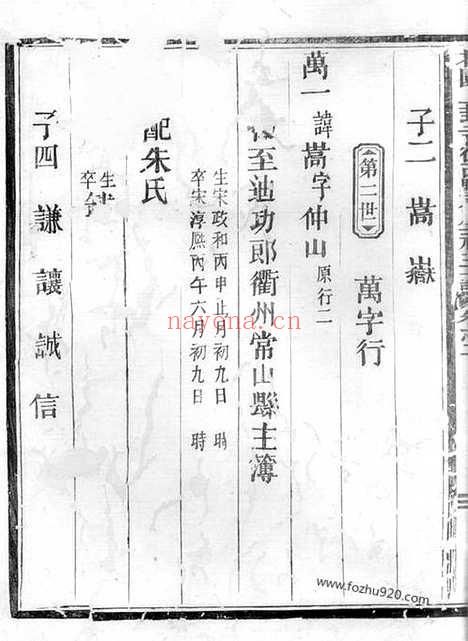 子二嵩嶽
第二世 萬字行
萬一諱嵩字仲山原行二
至迪功郎衢州常山縣主簿
生宋政和丙申正月初九日時
卒宋淳熙丙午六月初九日時
配朱氏
生
卒
子四謙讓誠信
nayona.cn
www.fozhu920.com